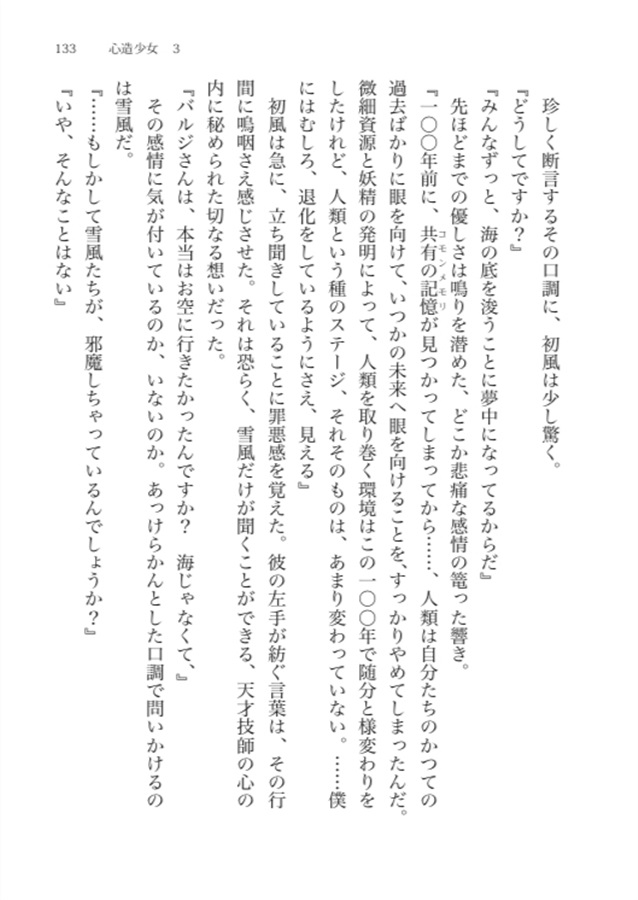 133　心造少女　3
　珍しく断言するその口調に、初風は少し驚く。
『どうしてですか？』
『みんなずっと、海の底を浚うことに夢中になってるからだ』
　先ほどまでの優しさは鳴りを潜めた、どこか悲痛な感情の篭った響き。
『一〇〇年前に、共有の記憶が見つかってしまってから……、人類は自分たちのかつての
コモンメモリ
過去ばかりに眼を向けて、いつかの未来へ眼を向けることを、すっかりやめてしまったんだ。
微細資源と妖精の発明によって、人類を取り巻く環境はこの一〇〇年で随分と様変わりを
したけれど、人類という種のステージ、それそのものは、あまり変わっていない。……僕
にはむしろ、退化をしているようにさえ、見える』
　初風は急に、立ち聞きしていることに罪悪感を覚えた。彼の左手が紡ぐ言葉は、その行
間に嗚咽さえ感じさせた。それは恐らく、雪風だけが聞くことができる、天才技師の心の
内に秘められた切なる想いだった。
『バルジさんは、本当はお空に行きたかったんですか？　海じゃなくて、』
　その感情に気が付いているのか、いないのか。あっけらかんとした口調で問いかけるの
は雪風だ。
『……もしかして雪風たちが、邪魔しちゃっているんでしょうか？』
『いや、そんなことはない』